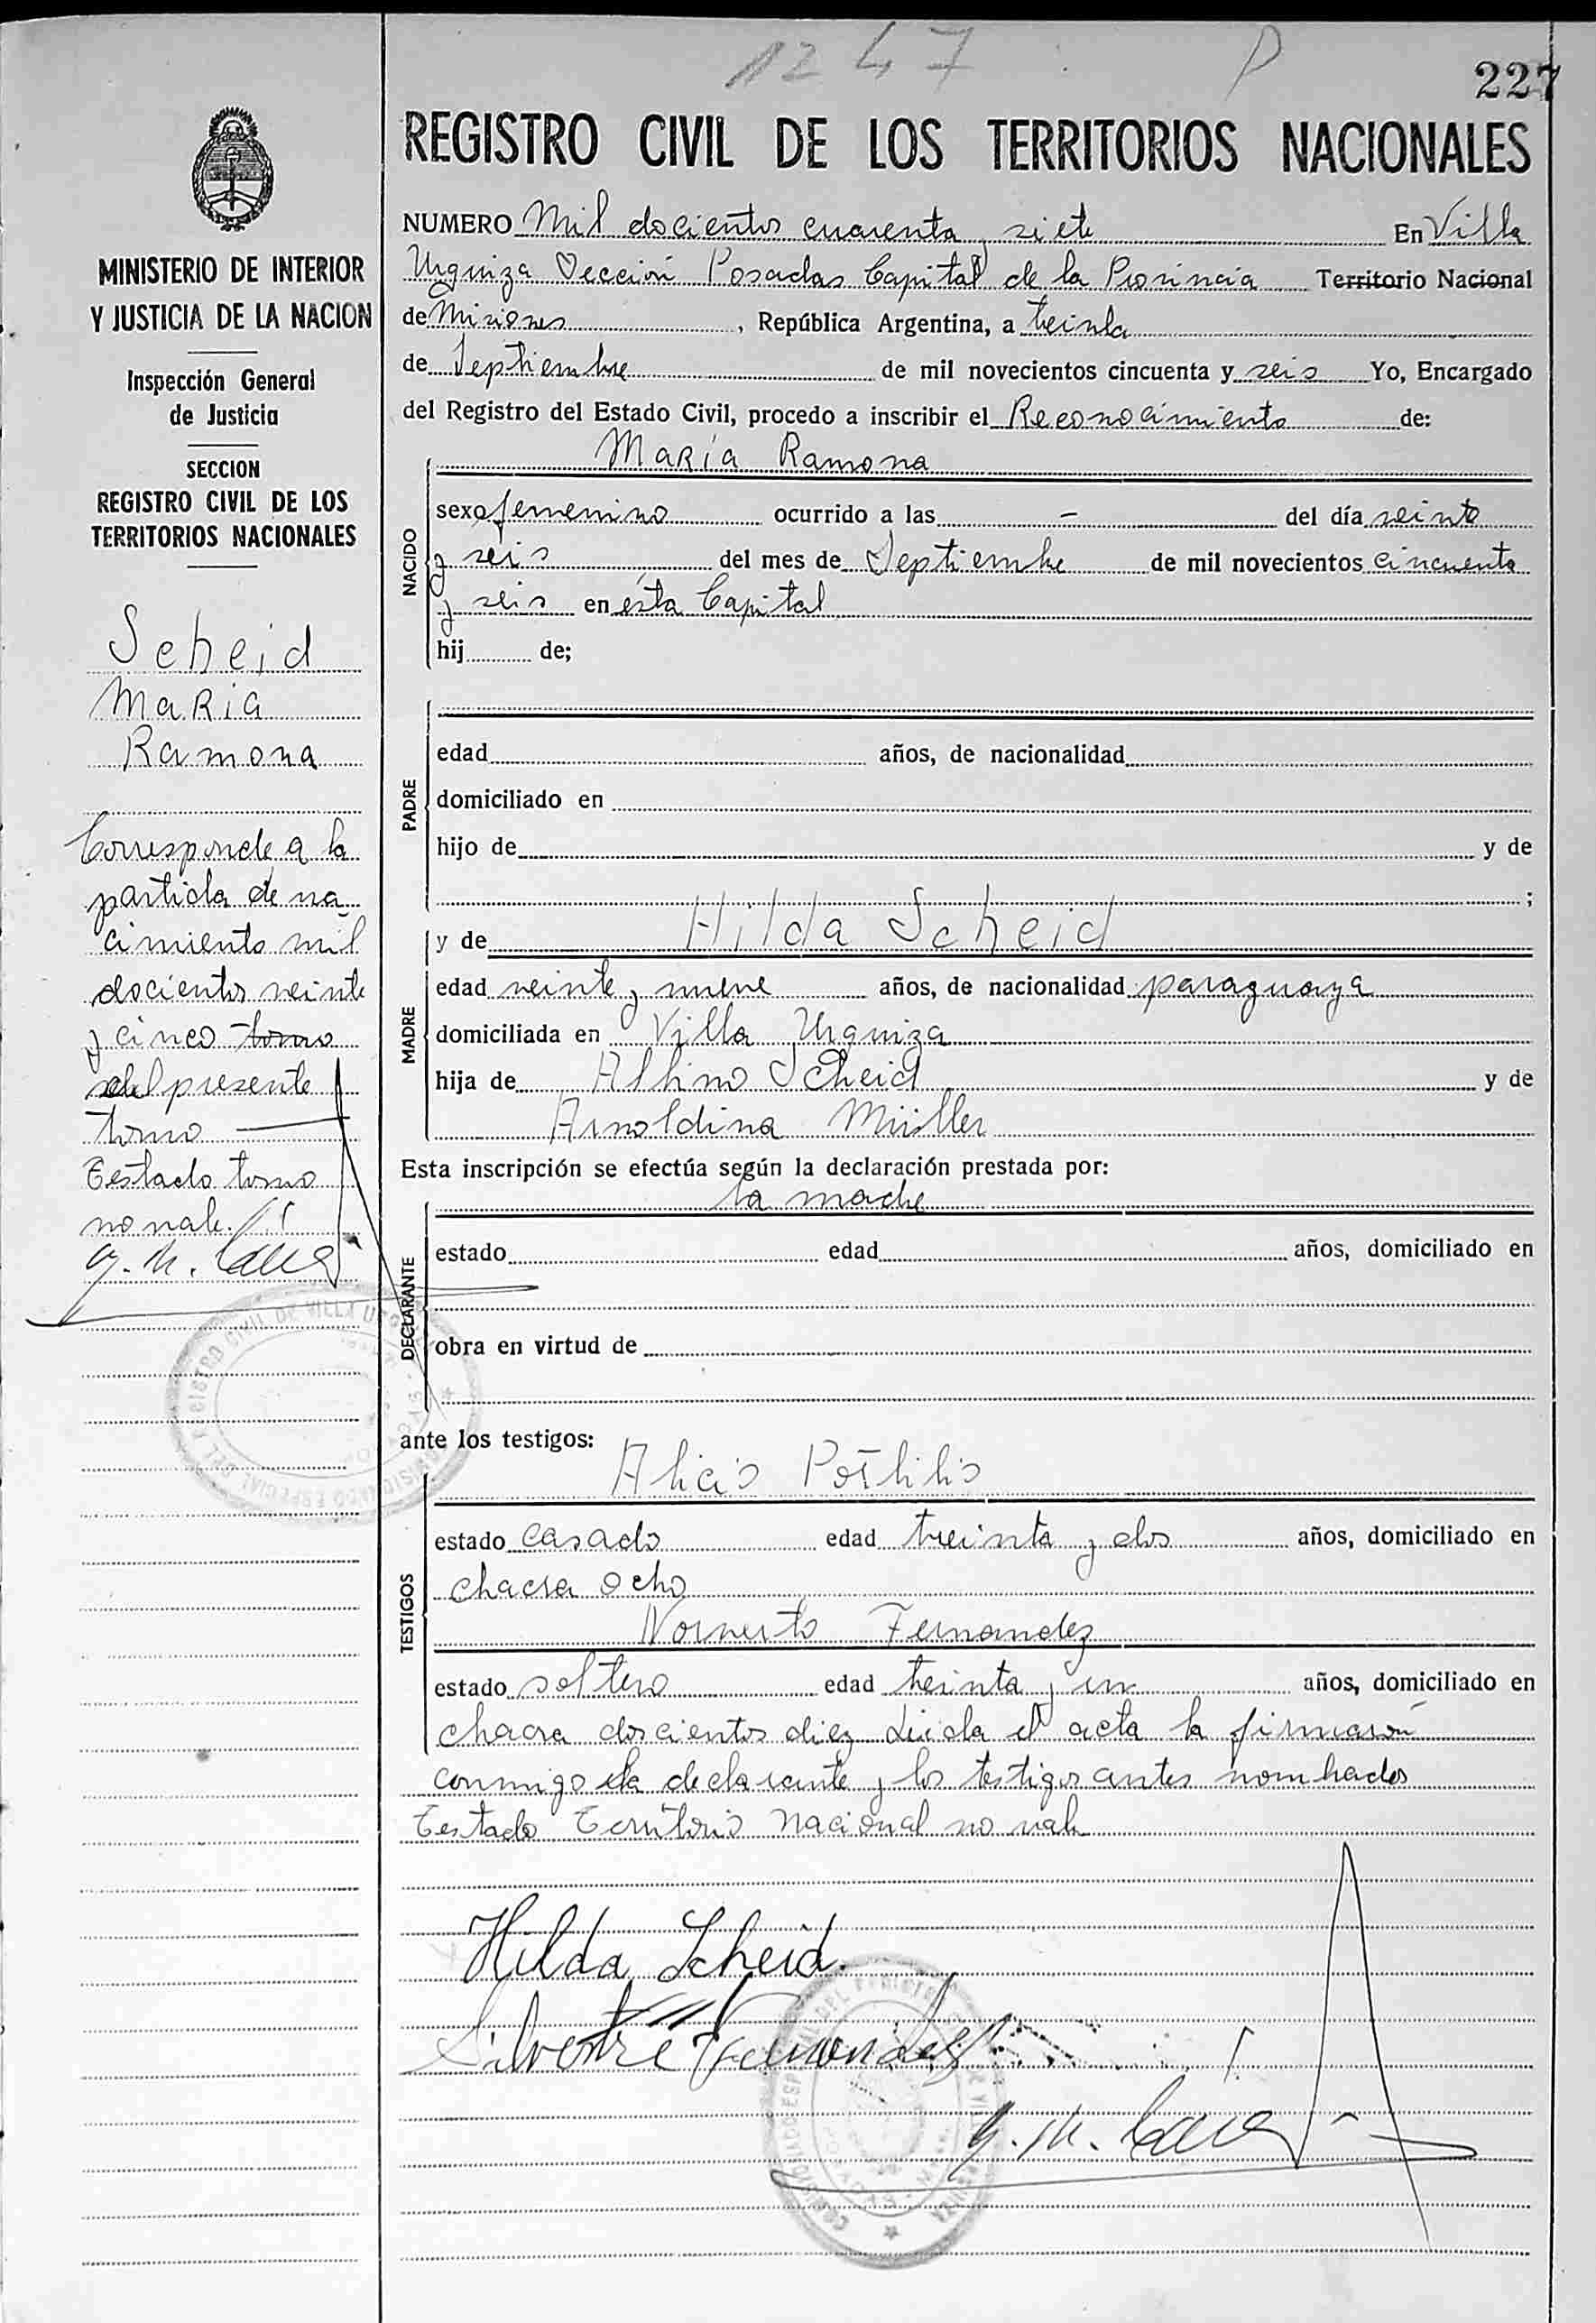 1247 P
227
REGISTRO CIVIL DE LOS TERRITORIOS NACIONALES
MINISTERIO DE INTERIOR
Y JUSTICIA DE LA NACION
Inspección General
de Justicia
SECCION
REGISTRO CIVIL DE LOS
TERRITORIOS NACIONALES
Scheid
María
Ramona
Corresponde a la
partida de na
cimiento mil
docientos veinte
y cinco tomo
del presente
tomo
Testado tomo
no vale.
NUMERO Mil docientos cuarenta y siete En Villa
Urquiza Sección Posadas Capital de la Provincia Territorio Nacional
de Misiones, República Argentina, a treinta
de Septiembre de mil novecientos cincuenta y seis Yo, Encargado
del Registro del Estado Civil, procedo a inscribir el Reconocimiento de:
María Ramona
NACIDO
sexo femenino ocurrido a las - del día veinte
y seis del mes de Septiembre de mil novecientos cincuenta
y seis en esta Capital
hij de;
PADRE
edad años, de nacionalidad
domiciliado en
hijo de y de
;
y de Hilda Scheid
MADRE
edad veinte y nueve años, de nacionalidad paraguaya
domiciliada en Villa Urquiza
hija de Albino Scheid y de
Arnoldina Müller
Esta inscripción se efectúa según la declaración prestada por:
la madre
DECLARANTE
estado edad años, domiciliado en
obra en virtud de
ante los testigos:
Alicio
TESTIGOS
estado casado edad treinta y dos años, domiciliado en
chacra ocho
Norverto Fernandez
estado soltero edad treinta y un años, domiciliado en
chacra doscientos diez Leida el acta la firmaron
conmigo la declarante y los testigos antes nombrados
Testado Territorio Nacional no vale
Hilda Scheid.
Silvestre Fernandez